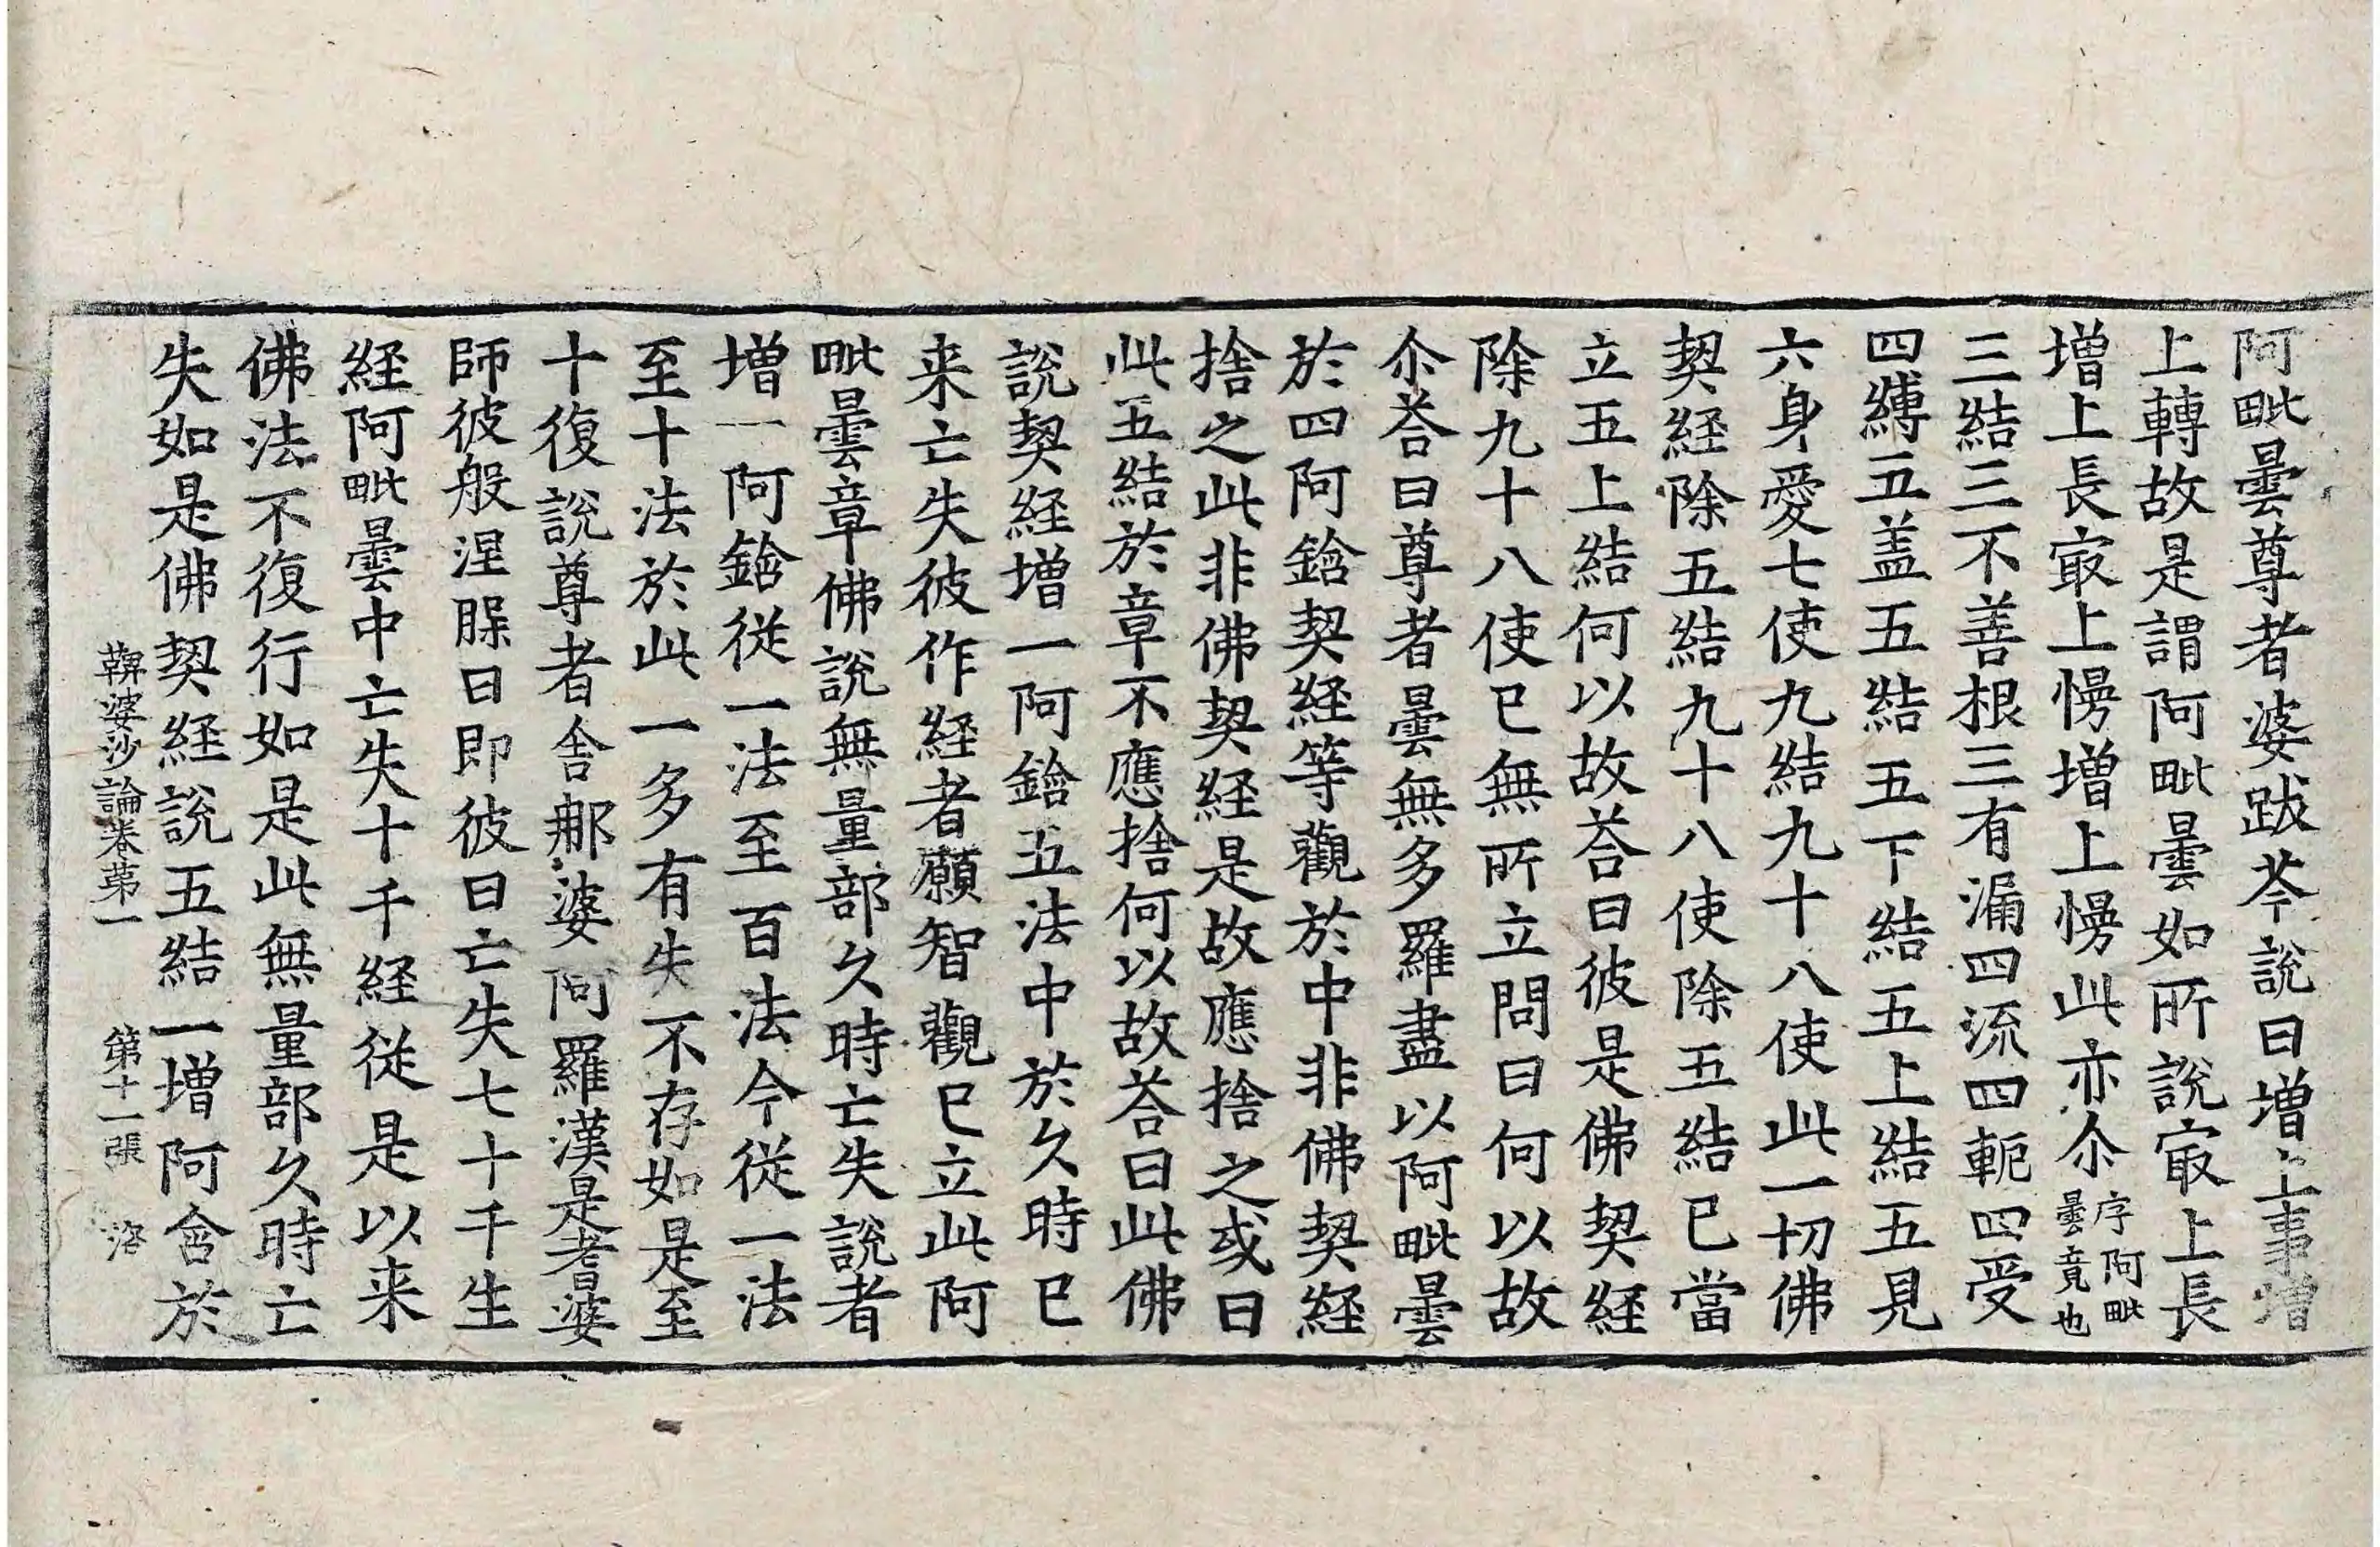 阿毗曇尊者婆跋苓說曰增上事增
上轉故是謂阿毗曇如所說㝡上長
增上長㝡上慢增上慢此亦尒序阿毗曇竟也
三結三不善根三有漏四流四軛四受
四縛五盖五結五下結五上結五見
六身愛七使九結九十八使此一切佛
契経除五結九十八使除五結已當
立五上結何以故荅曰彼是佛契経
除九十八使已無所立問曰何以故
尒荅曰尊者曇無多羅盡以阿毗曇
於四阿鋡契経等觀於中非佛契経
捨之此非佛契経是故應捨之或曰
此五結於章不應捨何以故荅曰此佛
說契経增一阿鋡五法中於久時已
来亡失彼作経者願智觀已立此阿
毗曇章佛說無量部久時亡失說者
增一阿鋡從一法至百法今從一法
至十法於此一多有失不存如是至
十復說尊者舍那婆阿羅漢是耆婆
師彼般涅脲日即彼日亡失七十千生
経阿毗曇中亡失十千経從是以来
佛法不復行如是此無量部久時亡
失如是佛契経說五結一增阿含於
鞞婆沙論卷苐一 第十一張 洛